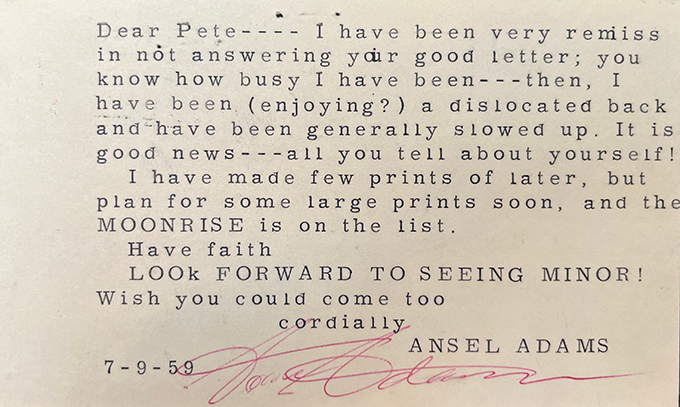 Dear Pete---- I have been very remiss
in not answering your good letter; you
know how busy I have been---then, I
have been (enjoying?) a dislocated back
and have been generally slowed up. It is
good news---all you tell about yourself!
I have made few prints of later, but
plan for some large prints soon, and the
MOONRISE is on the list.
Have faith
LOOk FORWARD TO SEEING MINOR!
Wish you could come too
cordially
ANSEL ADAMS
7-9-59
Ansel Adams